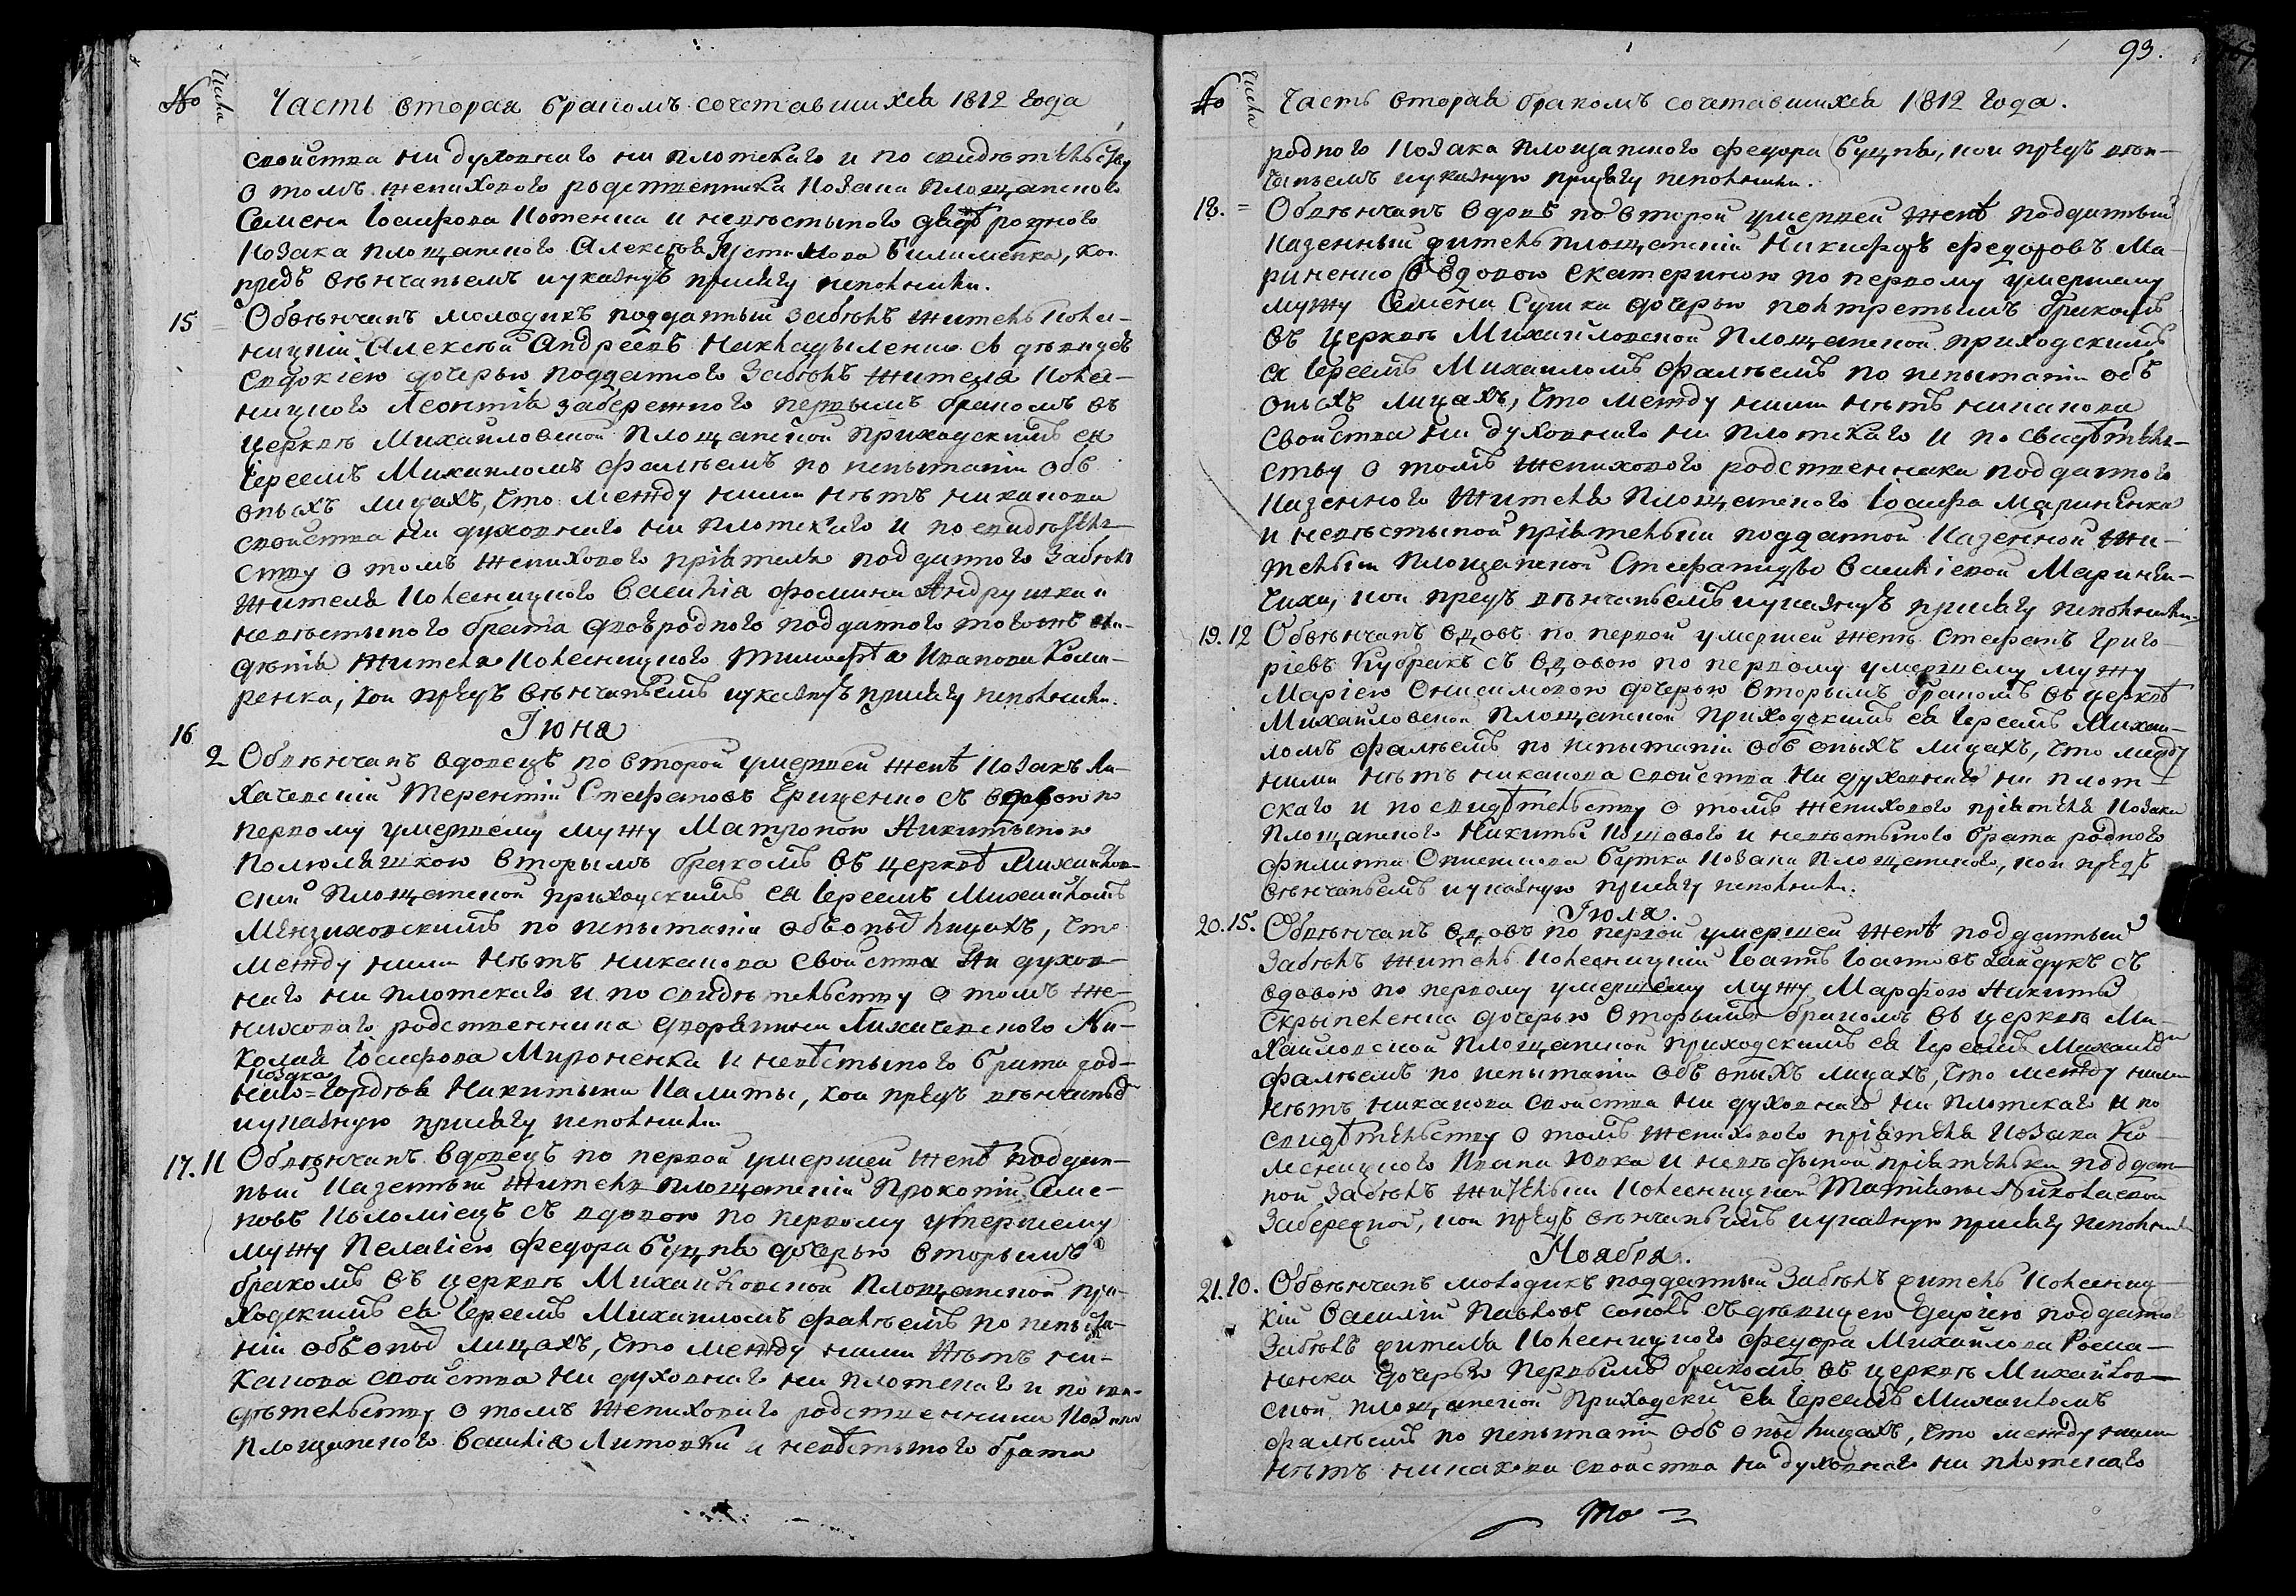 № Числа Часть вторая бракомъ сочетавшихся 1812 года
свойства ни духовнаго ни плотскаго и по свидѣтельству
о томъ женихового родственника козака площанского
Семена Іосифова Котенка и невѣстыного дяди родного
козака площанского Алексѣя Устимова, кои
предъ вѣнчаніемъ указную присягу исполнили.
15 = Обвѣнчанъ молодикъ подданный Забѣлъ житель Колес-
ницкій Алексѣй Андреевъ съ дѣвицею
Евдокіею дочерью подданного Забѣлъ жителя Колес-
ницкого Леонтія Забережного первымъ бракомъ въ
церквѣ Михайловской Площанской приходскимъ ея
Іереемъ Михаиломъ Фалѣемъ по испытаніи объ
оныхъ лицахъ, что между ними нѣтъ никакова
свойства ни духовнаго ни плотскаго и по свидѣтель-
ству о томъ женихового пріятеля подданного Забѣлъ
жителя Колесницкого Василія Фомина Андрушка и
невѣстыного брата двоѣродного подданного того же вла-
дѣнія жителя Колесницкого Тимофѣя Иванова Кома-
ренка, кои предъ вѣнчаніемъ указную присягу исполнили.
Іюня
16 2 Обвѣнчанъ вдовецъ по второй умершей женѣ козакъ Ли-
хачевскій Терентій Стефановъ Ериценко съ вдовою по
первому умершему мужу Матроною Никитыною
вторымъ бракомъ въ церквѣ Михайлов-
ской Площанской приходскимъ ея Іереемъ Михаиломъ
по испытаніи объ оныхъ лицахъ, что
между ними нѣтъ никакова свойства ни духов-
наго ни плотскаго и по свидѣтельству о томъ же-
нихового родственника дворянина Лихачевского Ни-
колая Іосифова Мироненка и невѣстыного брата род-
ного козака Гордѣя Никитына Калиты, кои предъ вѣнчаніемъ
указную присягу исполнили.
17. 11 Обвѣнчанъ вдовецъ по первой умершей женѣ поддан-
ный казенный житель площанскій Прокопій Семе-
новъ Коломіецъ съ вдовою по первому умершему
мужу Пелагіею Федора Буцня дочерью вторымъ
бракомъ въ церквѣ Михайловской Площанской при-
ходскимъ ея Іереемъ Михаиломъ Фалѣемъ по испыта-
ніи объ оныхъ лицахъ, что между ними нѣтъ ни-
какова свойства ни духовнаго ни плотскаго и по сви-
дѣтельству о томъ женихового родственника козака
площанского Василія Литовки и невѣстыного брата
93.
№ Числа Часть вторая бракомъ сочетавшихся 1812 года.
родного козака площанского Федора Буцня, кои предъ вѣн-
чаніемъ указную присягу исполнили.
18. = Обвѣнчанъ вдовъ по второй умершей женѣ подданный
казенный житель площанскій Никифоръ Федоровъ Ма-
риненко съ вдовою Екатериною по первому умершему
мужу Семена Сушка дочерью третьимъ бракомъ
въ церквѣ Михайловской Площанской приходскимъ
ея Іереемъ Михаиломъ Фалѣемъ по испытаніи объ
оныхъ лицахъ, что между ними нѣтъ никакова
свойства ни духовнаго ни плотскаго и по свидѣтель-
ству о томъ женихового родственника подданного
казенного жителя площанского Іосифа Мариненка
и невѣстыной пріятельки подданной казенной жи-
тельки площанской Стефаниды Василіевой Маринен-
чихи, кои предъ вѣнчаніемъ указную присягу исполнили.
19. 12 Обвѣнчанъ вдовъ по первой умершей женѣ Стефанъ Григо-
ріевъ Кубракъ съ вдовою по первому умершему мужу
Маріею Онисимовою дочерью вторымъ бракомъ въ церквѣ
Михайловской Площанской приходскимъ ея Іереемъ Михаи-
ломъ Фалѣемъ по испытаніи объ оныхъ лицахъ, что между
ними нѣтъ никакова свойства ни духовнаго ни плот-
скаго и по свидѣтельству о томъ женихового пріятеля козака
площанского Никиты Кошового и невѣстыного брата родного
Филиппа Онисимова Бутка козака площанского, кои предъ
вѣнчаніемъ указную присягу исполнили.
Іюля.
20. 15. Обвѣнчанъ вдовъ по первой умершей женѣ подданный
Забѣлъ житель Колесницкій Іоаннъ Іоанновъ Гайдукъ съ
вдовою по первому умершему мужу Марфою Никиты
Скрыпеленка дочерью вторымъ бракомъ въ церквѣ Ми-
хайловской Площанской приходскимъ ея Іереемъ Михаиломъ
Фалѣемъ по испытаніи объ оныхъ лицахъ, что между ними
нѣтъ никакова свойства ни духовнаго ни плотскаго и по
свидѣтельству о томъ женихового пріятеля козака Ко-
лесницкого Ивана Юрка и невѣстыной пріятельки поддан-
ной Забѣлъ жительки Колесницкой Татіаны Николаевой
Забережной, кои предъ вѣнчаніемъ указную присягу исполнили
Ноября.
21. 10. Обвѣнчанъ молодикъ подданный Забѣлъ житель Колесниц-
кій Василій Павловъ съ дѣвицею Даріею подданного
Забѣлъ жителя Колесницкого Федора Михайлова Росса-
ненка дочерью первымъ бракомъ въ церквѣ Михайлов-
ской площанской приходскимъ ея Іереемъ Михаиломъ
Фалѣемъ по испытаніи объ оныхъ лицахъ, что между ними
нѣтъ никакова свойства ни духовнаго ни плотскаго